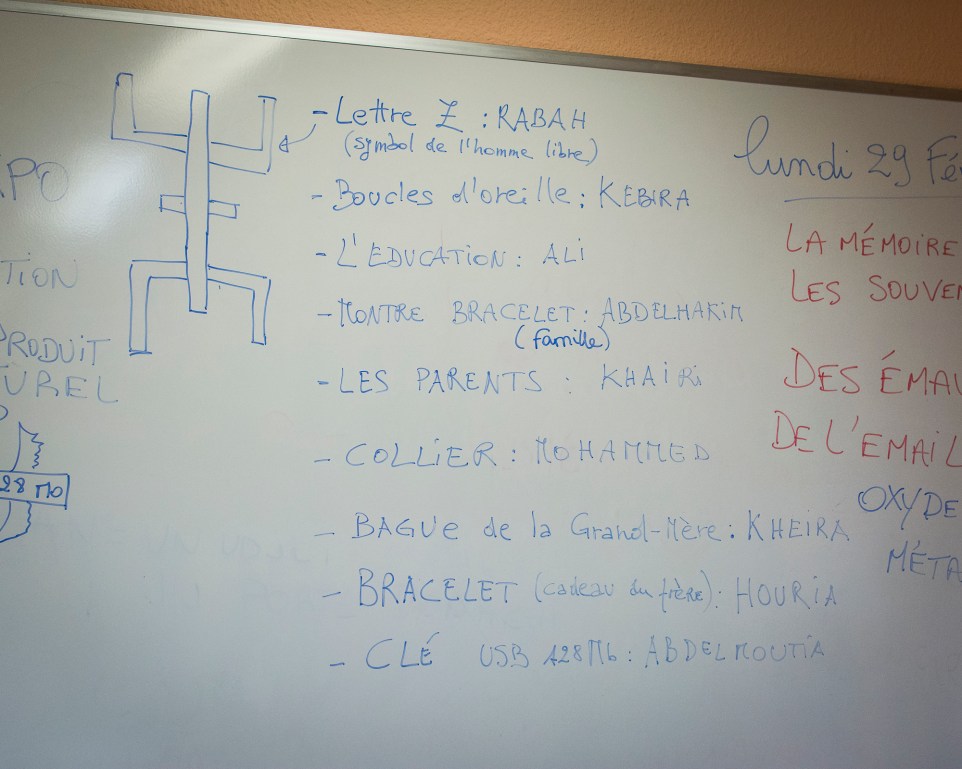 - Lettre Z : RABAH
(symbol de l'homme libre)
- Boucles d'oreille : KEBIRA
- L'EDUCATION : ALI
- MONTRE BRACELET : ABDELHAKIM
(famille)
- LES PARENTS : KHAIRI
- COLLIER : MOHAMMED
- BAGUE de la Grand-Mère : KHEIRA
- BRACELET (cadeau du frère) : HOURIA
- CLÉ USB 128 Mb : ABDELMOUTIA
XPO
TION
PRODUIT
TUREL
28 Mo
lundi 29 Fé
LA MÉMOIRE
LES SOUVEN
DES ÉMAU
DE L'EMAIL
OXYDE
MÉTA